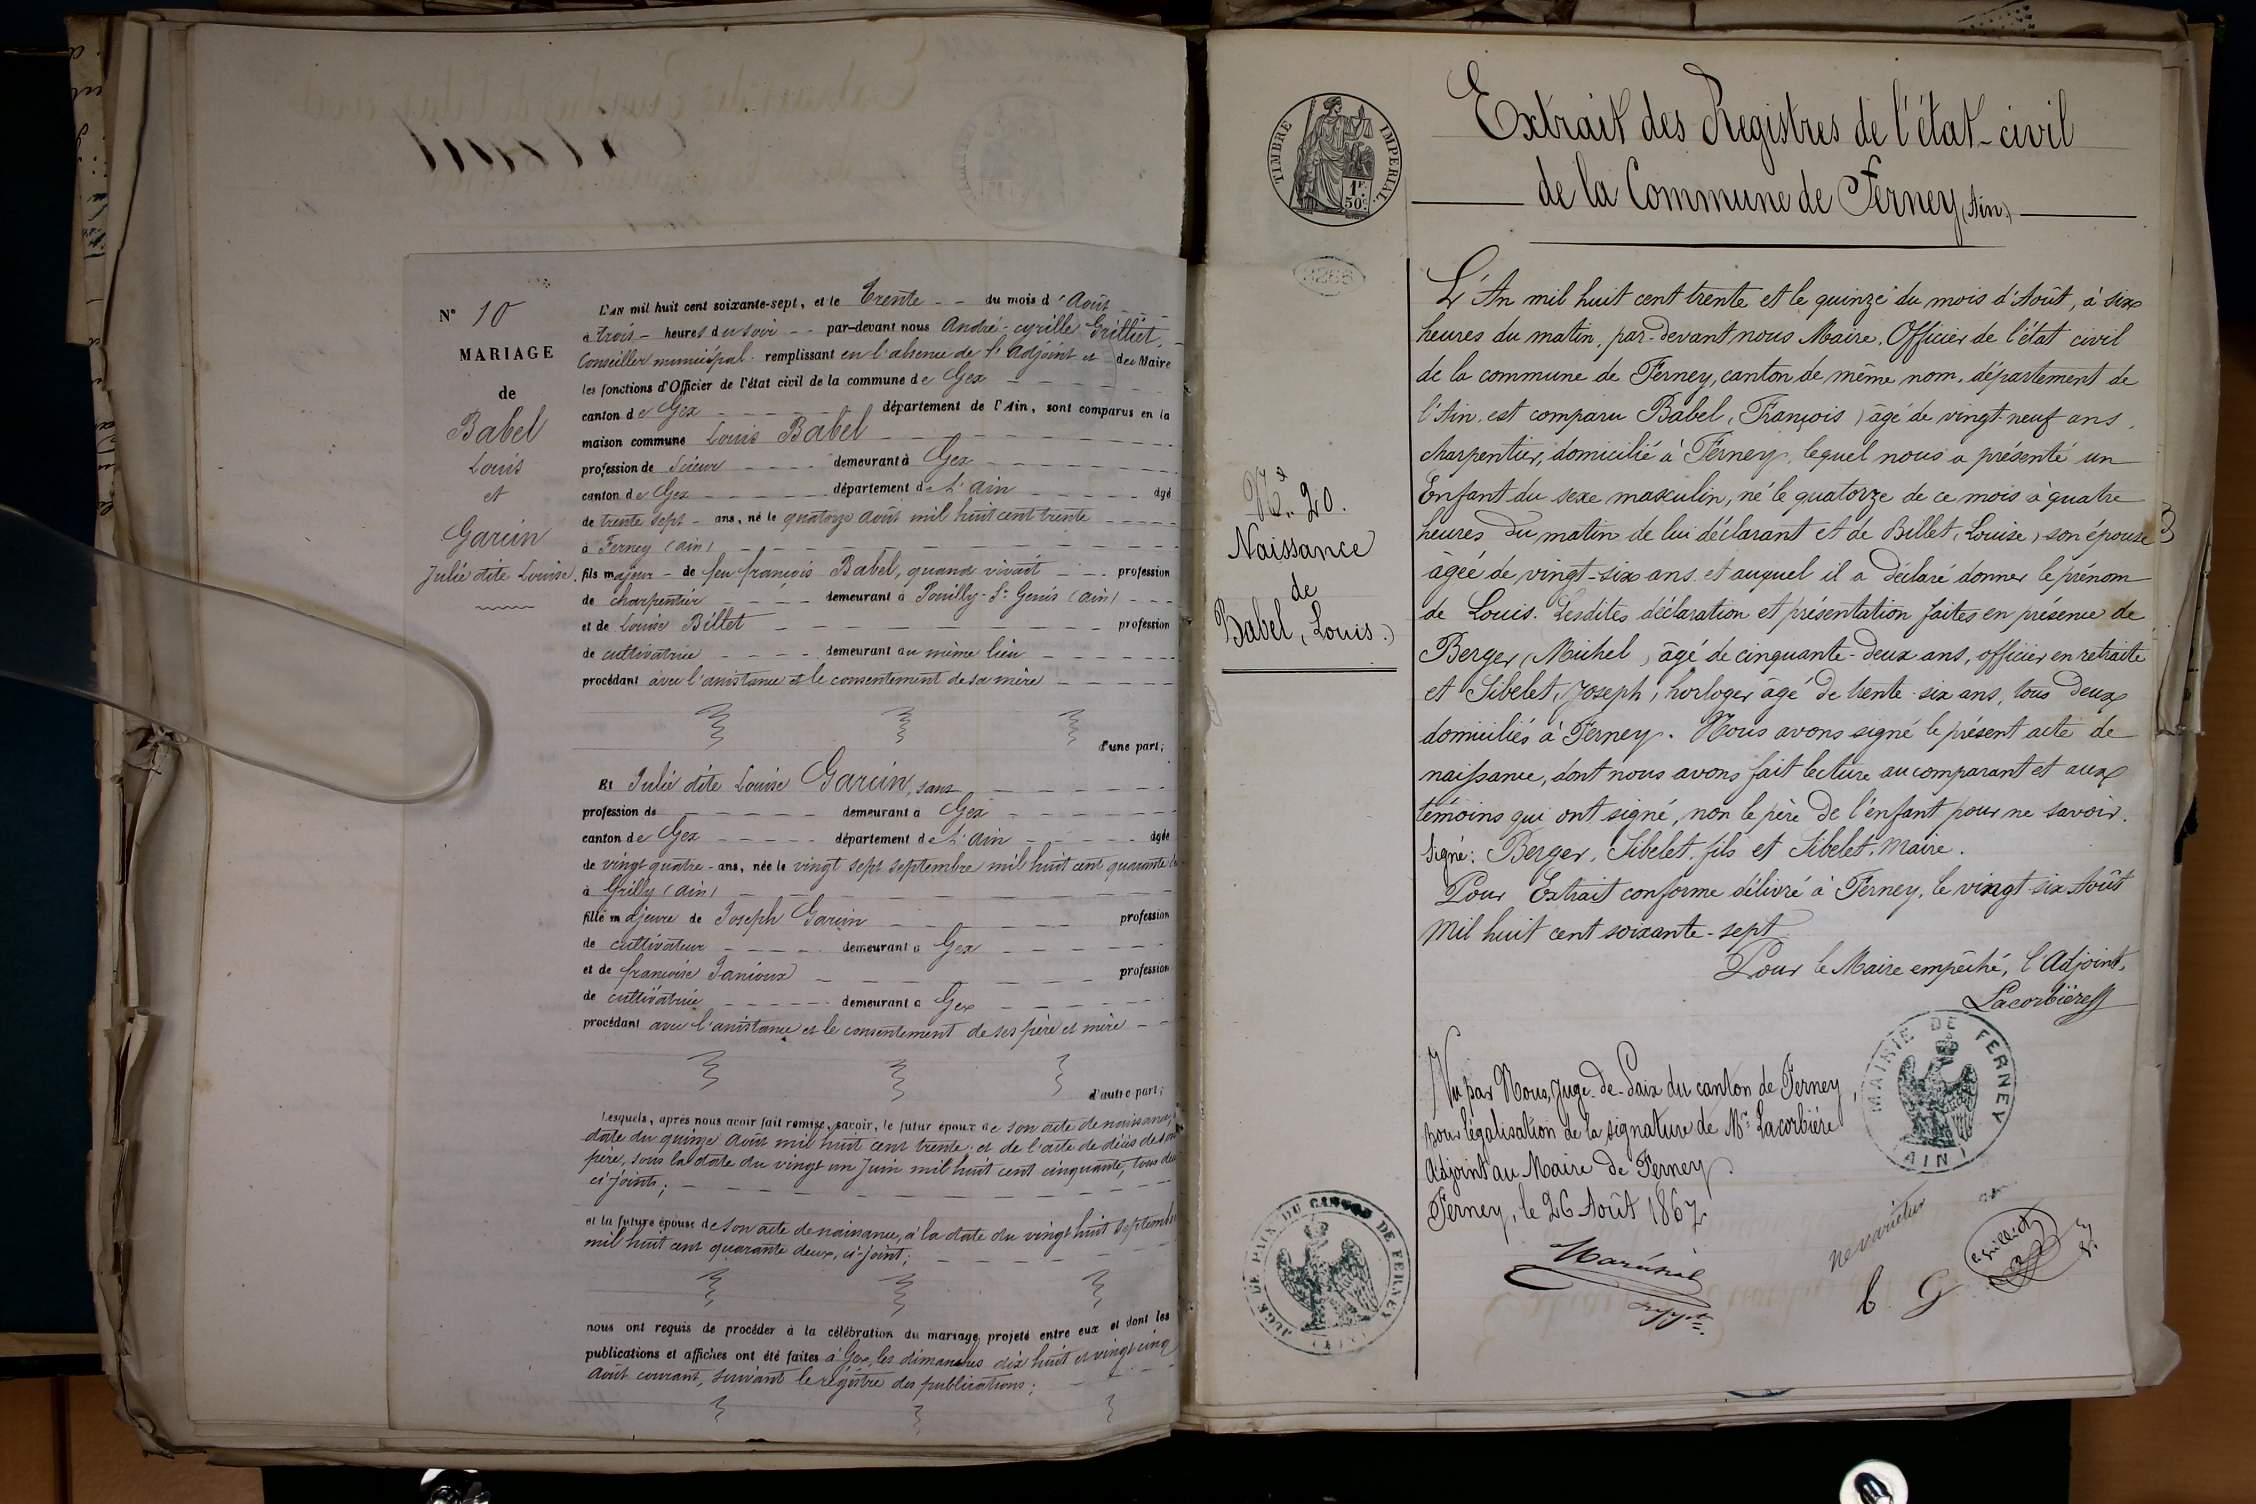 N° 10
MARIAGE
de
Babel
Louis
et
Garcin
Julie dite Louise.
L'AN mil huit cent soixante-sept, et le Trente du mois d'Août
à trois heures du soir par-devant nous André-cyrille Grilliet,
Conseiller municipal remplissant en l'absence de l'adjoint et des Maire
les fonctions d'Officier de l'état civil de la commune de Gex
canton de Gex département de l'Ain, sont comparus en la
maison commune Louis Babel
profession de Scieur demeurant à Gex
canton de Gex département de l'ain âgé
de trente sept ans, né le quatorze août mil huit cent trente
à Ferney (ain)
fils majeur de feu françois Babel, quand vivait profession
de charpentier demeurant à Pouilly-St Genis (ain)
et de Louise Billet profession
de cultivatrice demeurant au même lieu
procédant avec l'assistance et le consentement de sa mère
d'une part;
Et Julie dite Louise Garcin, sans
profession de demeurant à Gex
canton de Gex département de l'ain âgée
de vingt quatre ans, née le vingt sept septembre mil huit cent quarante
à Grilly (ain)
fille majeure de Joseph Garcin profession
de cultivateur demeurant à Gex
et de françoise Janioux profession
de cultivatrice demeurant à Gex
procédant avec l'assistance et le consentement de ses père et mère
d'autre part;
Lesquels, après nous avoir fait remise, savoir, le futur époux de son acte de naissance,
date du quinze août mil huit cent trente; et de l'acte de décès de son
père, sous la date du vingt un Juin mil huit cent cinquante, tous deux
ci-joints;
et la future épouse de son acte de naissance, à la date du vingt huit septembre
mil huit cent quarante deux, ci-joint;
nous ont requis de procéder à la célébration du mariage projeté entre eux et dont les
publications et affiches ont été faites à Gex, les dimanches dix huit et vingt cinq
Août courant, suivant le régistre des publications;
TIMBRE IMPERIAL
1F.
50c.
Extrait des Registres de l'état-civil
de la Commune de Ferney (Ain)
N° 20.
Naissance
de
Babel, (Louis.)
L'An mil huit cent trente et le quinze du mois d'Août, à six
heures du matin, par-devant nous Maire, Officier de l'état civil
de la commune de Ferney, canton de même nom, département de
l'Ain, est comparu Babel, (François) âgé de vingt-neuf ans,
charpentier, domicilié à Ferney, lequel nous a présenté un
Enfant du sexe masculin, né le quatorze de ce mois à quatre
heures du matin de lui déclarant et de Billet, (Louise) son épouse
âgée de vingt-six ans et auquel il a déclaré donner le prénom
de Louis. Lesdites déclaration et présentation faites en présence de
Berger (Michel) âgé de cinquante-deux ans, officier en retraite
et Sibelet, (Joseph) horloger âgé de trente-six ans, tous deux
domiciliés à Ferney. Nous avons signé le présent acte de
naissance, dont nous avons fait lecture au comparant et aux
témoins qui ont signé, non le père de l'enfant pour ne savoir.
Signé: Berger, Sibelet fils et Sibelet, Maire.
Pour Extrait conforme délivré à Ferney, le vingt-six Août
Mil huit cent soixante-sept
Pour le Maire empêché, l'Adjoint,
Lacorbière
MAIRIE DE FERNEY
(AIN)
Vu par Nous, Juge-de-Paix du canton de Ferney,
pour légalisation de la signature de Mr Lacorbière
Adjoint au Maire de Ferney
Ferney, le 26 Août 1867
JUGE DE PAIX DU CANTON DE FERNEY
(AIN)
Maréchal
ne varietur
b. G